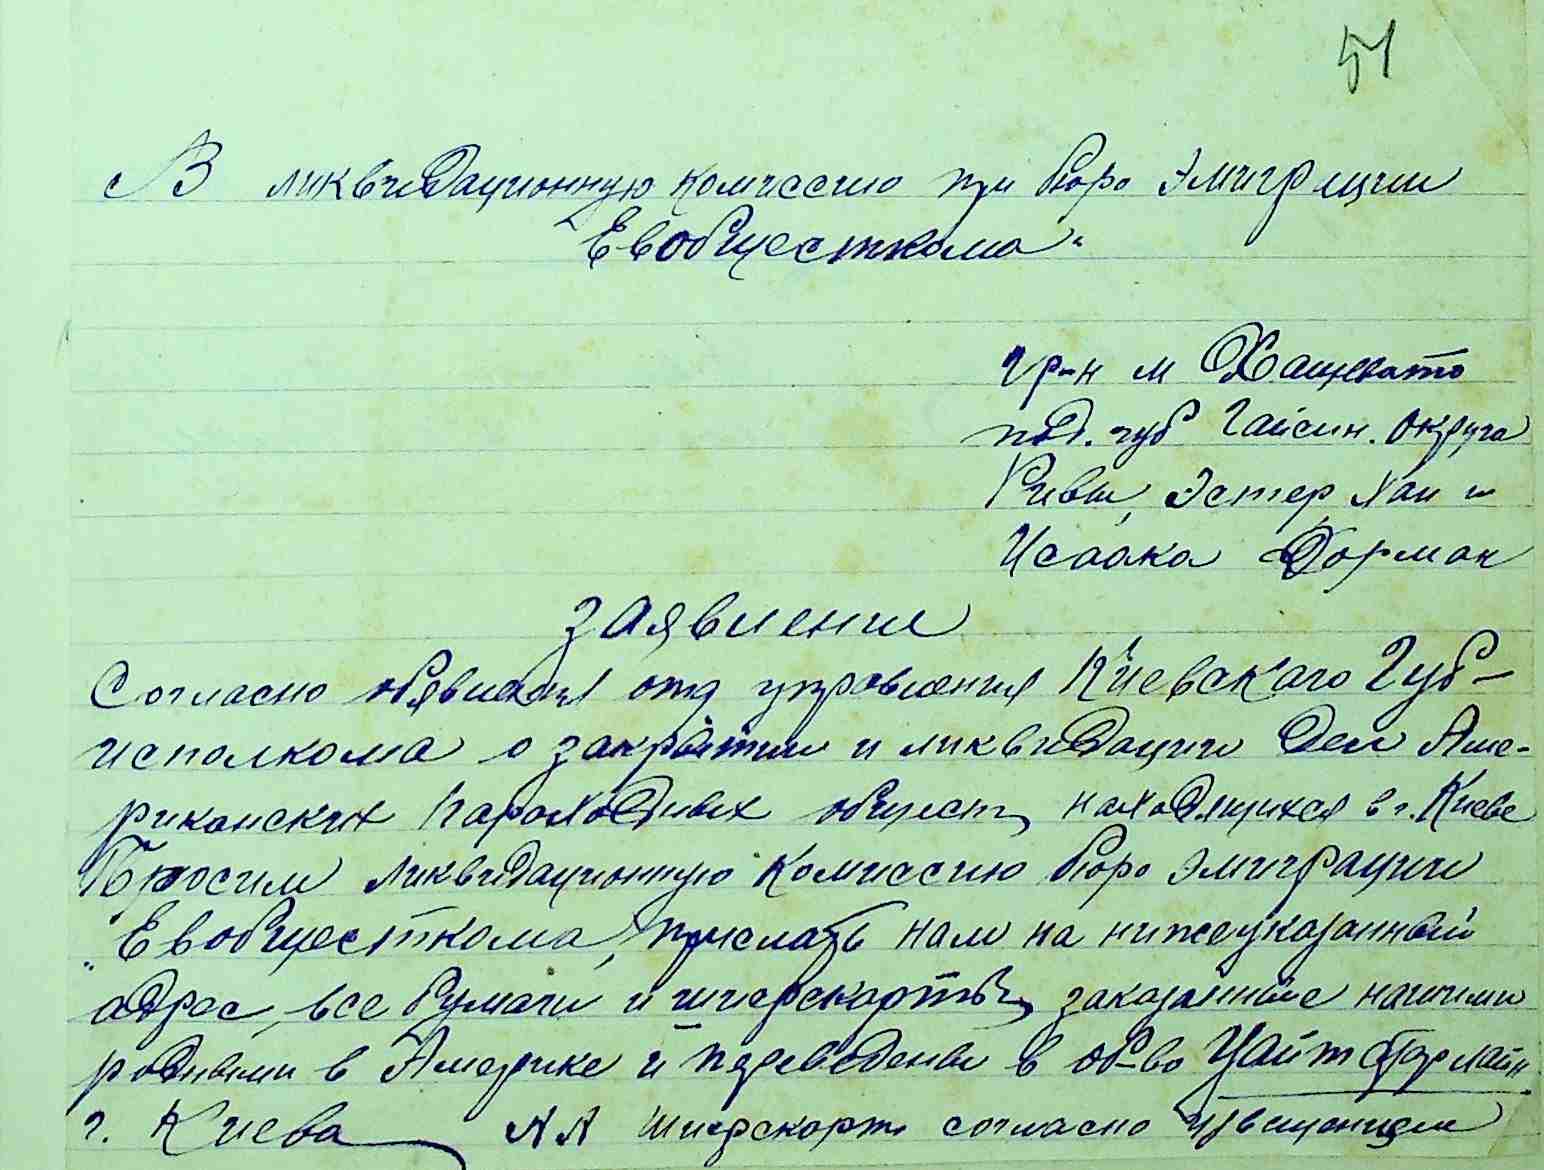 51
В ликвидационную комиссию при бюро Эмиграции
"Евобщесткома"
гр-н м Хащевато
под. губ Гайсин. округа
Ривы, Эстер, Хаи и
Исаака Дорман
Заявление
Согласно объявления отд управления Киевского Губ-
исполкома о закрытии и ликвидации Дел Аме-
риканских Пароходных обществ находящихся в г. Киеве
Просим ликвидационную Комиссию бюро эмиграции
"Евобщесткома", прислать нам на нижеуказанный
адрес, все бумаги и шифскарты, заказанные нашими
родными в Америке и переведены в об-во Уайт Стар лайн
г. Киева АА Шифскарт согласно извещениям